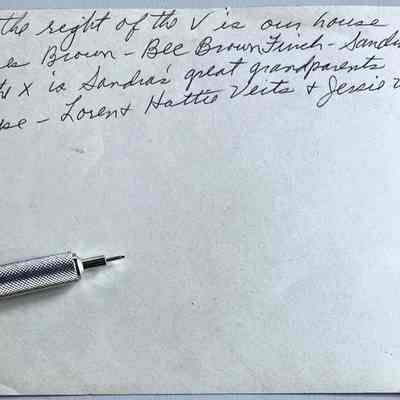 the right of the V is our house
es Brown - Bee Brown Finch - Sandra
X is Sandra's great grandparents
se - Loren & Hattie Veits & Jessie